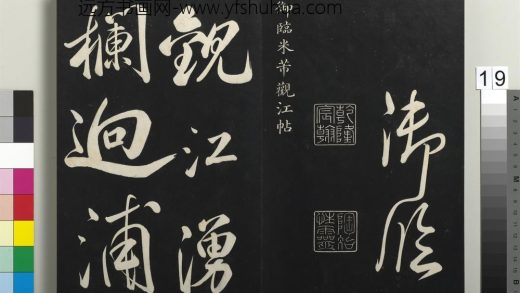 远方书画网- www.yfshuhua.com
御臨
乾隆宸翰
陶冶性靈
御臨米芾觀江帖
觀江湧
欄迴浦
19